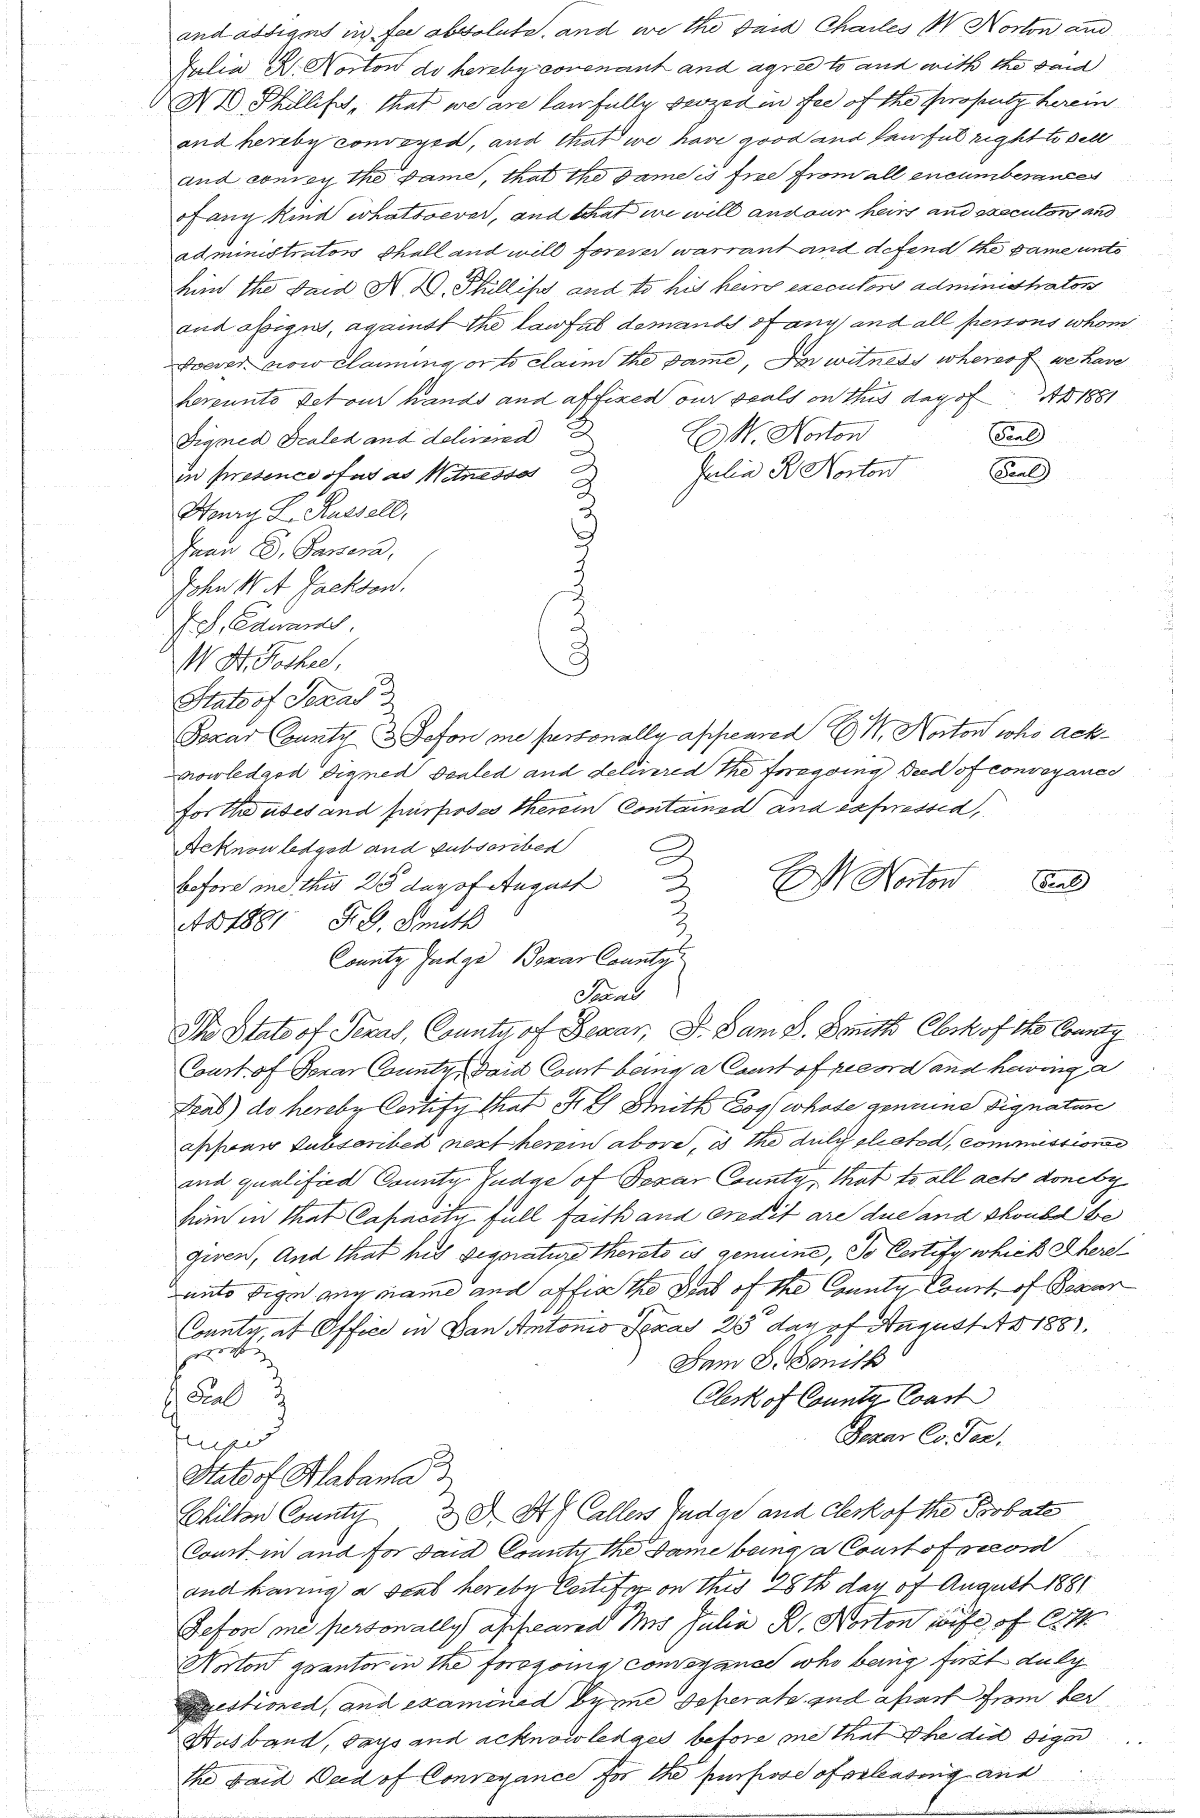 and assigns in fee absolute. and we the said Charles W Norton and
Julia R. Norton do hereby covenant and agree to and with the said
N D Phillips, that we are lawfully seized in fee of the property herein
and hereby conveyed, and that we have good and lawful right to sell
and convey the same, that the same is free from all encumberances
of any kind whatsoever, and that we will and our heirs and executors and
administrators shall and will forever warrant and defend the same unto
him the said N. D. Phillips and to his heirs executors administrators
and assigns, against the lawful demands of any and all persons whom
soever now claiming or to claim the same, In witness whereof we have
hereunto set our hands and affixed our seals on this day of AD 1881
Signed Sealed and delivered C W. Norton Seal
in presence of us as Witnesses Julia R Norton Seal
Henry L. Russell,
Juan E.
John W A Jackson.
J. S. Edwards.
W H. Foshee,
State of Texas
Bexar County Before me personally appeared C W. Norton who ack-
nowledged signed sealed and delivered the foregoing Deed of conveyance
for the uses and purposes therein Contained and expressed,
Acknowledged and subscribed
before me this 25 day of August C W Norton Seal
AD 1881 F. G. Smith
County Judge Bexar County
Texas
The State of Texas, County of Bexar, I. Sam S. Smith Clerk of the County
Court of Bexar County, (Said Court being a Court of record and having a
Seal) do hereby Certify that F G Smith Esq whose genuine signature
appears subscribed next herein above, is the duly elected, commissioned
and qualified County Judge of Bexar County, that to all acts done by
him in that Capacity full faith and credit are due and should be
given, And that his signature thereto is genuine, To Certify which I here-
unto sign my name and affix the Seal of the County Court of Bexar
County, at Office in San Antonio Texas 25 day of August AD 1881.
Sam S. Smith
Seal Clerk of County Court
Bexar Co. Tex.
State of Alabama
Chilton County I. H J Callens Judge and Clerk of the Probate
Court in and for said County the same being a Court of record
and having a seal hereby Certify on this 28th day of August 1881
Before me personally appeared Mrs Julia R. Norton wife of C. W.
Norton grantor in the foregoing conveyance who being first duly
questioned, and examined by me seperate and apart from her
Husband, says and acknowledges before me that she did sign
the said Deed of Conveyance for the purpose of releasing and